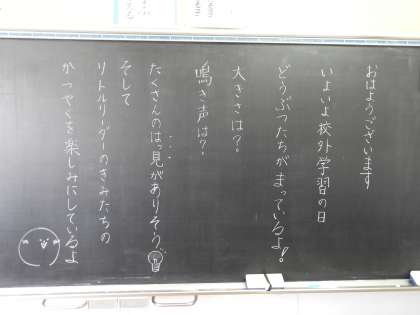 おはようございます
いよいよ校外学習の日
どうぶつたちがまっているよ!
大きさは?
鳴き声は?
たくさんのはっ見がありそう
そして
リトルリーダーのきみたちの
かつやくを楽しみにしているよ